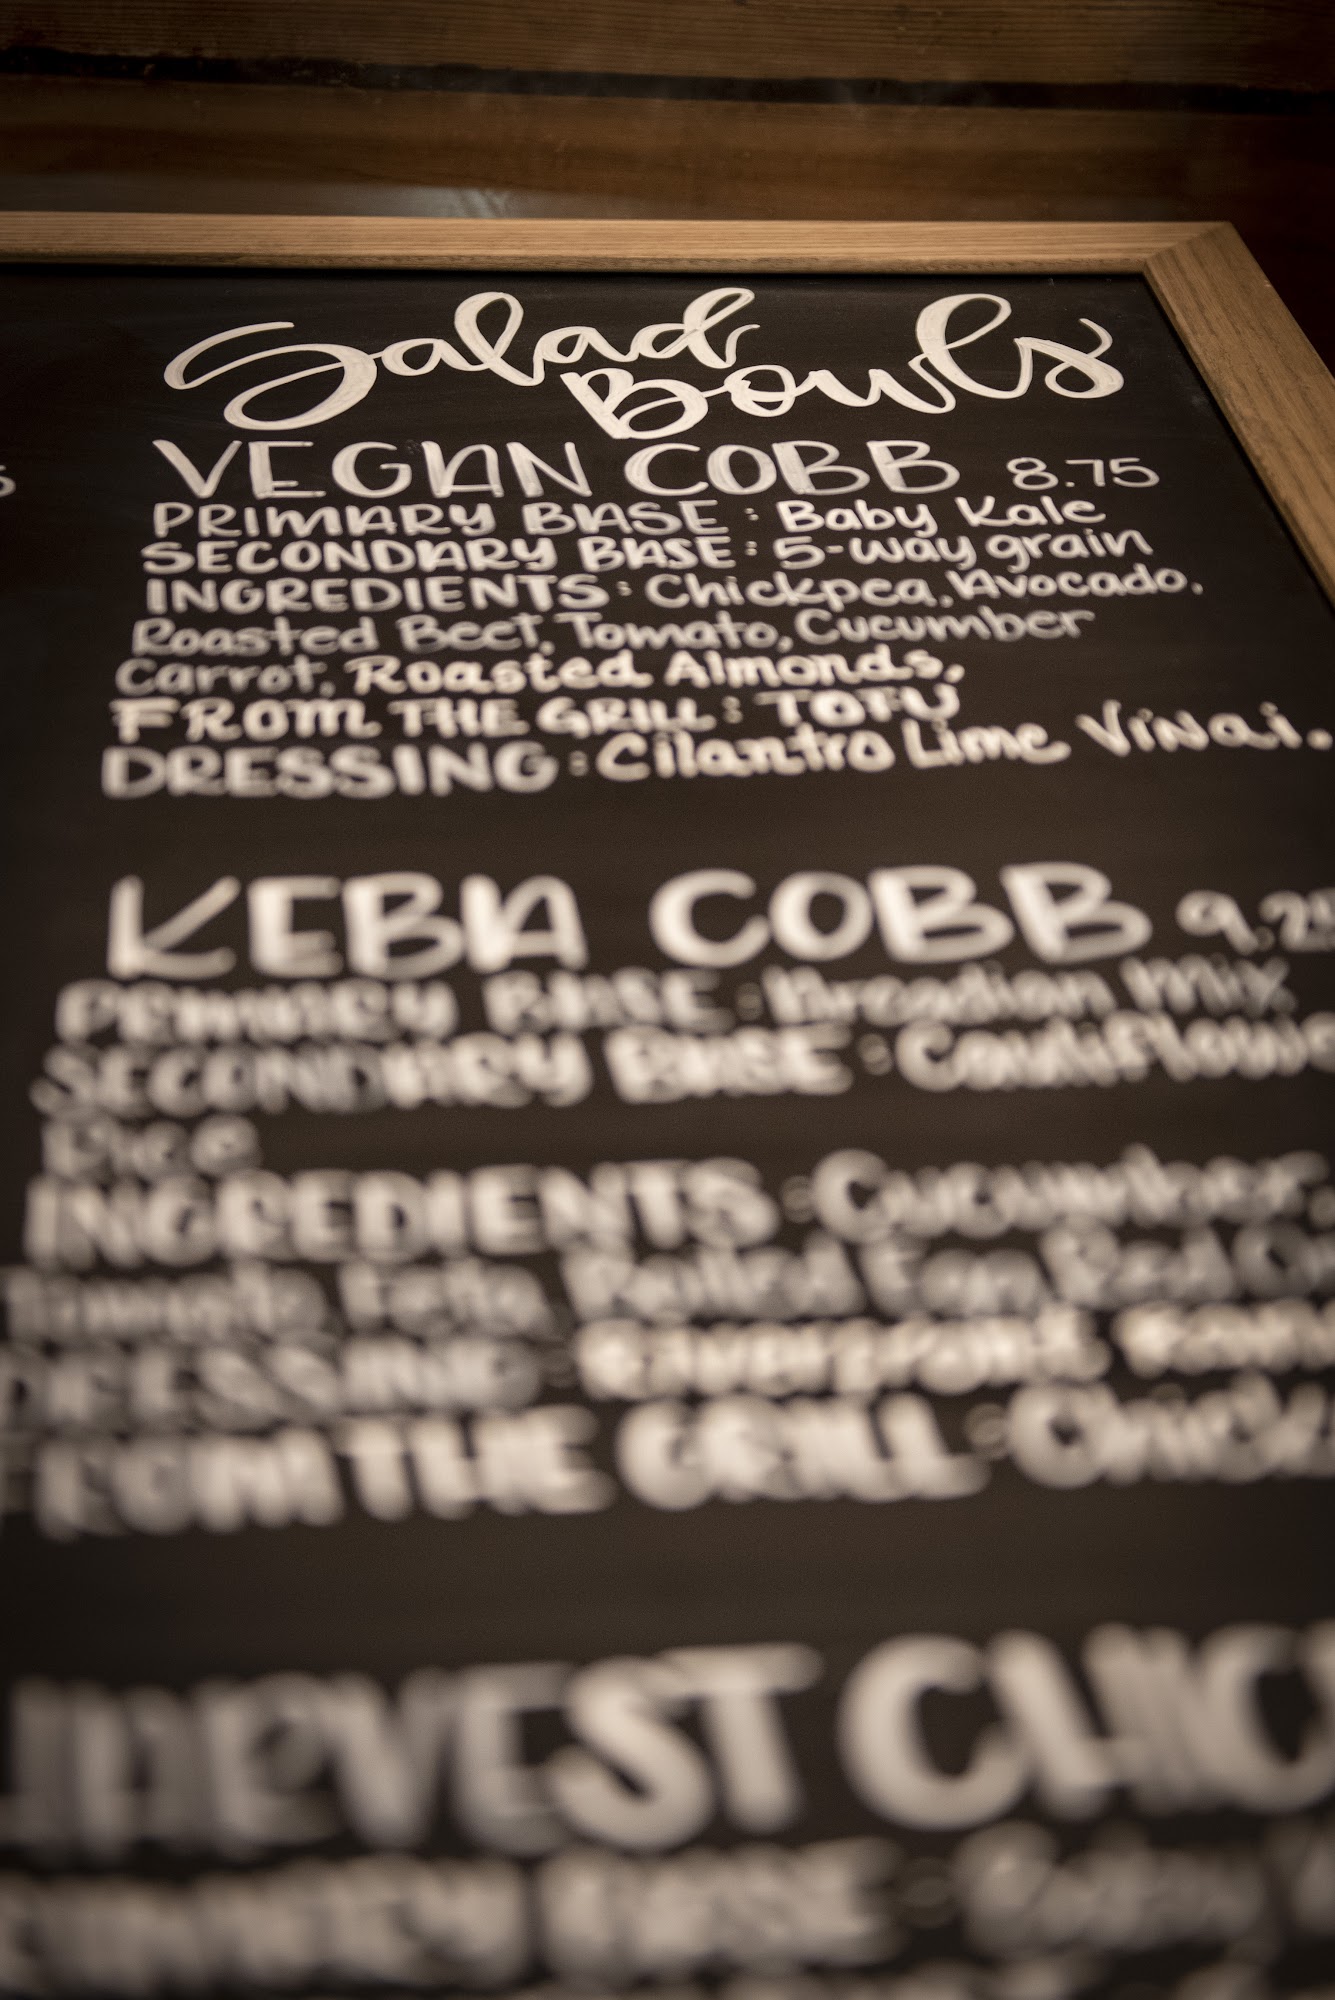 Salad
Bowls
VEGAN COBB 8.75
PRIMARY BASE : Baby Kale
SECONDARY BASE : 5-way grain
INGREDIENTS : Chickpea, Avocado,
Roasted Beet, Tomato, Cucumber
Carrot, Roasted Almonds,
FROM THE GRILL : TOFU
DRESSING : Cilantro Lime Vinai.
KEBA COBB 9.25
PRIMARY BASE : Arcadian Mix
SECONDARY BASE : Cauliflower
Rice
INGREDIENTS : Cucumber,
Tomato Feta Boiled Egg Red
DRESSING
FROM THE GRILL :
HARVEST
PRIMARY BASE